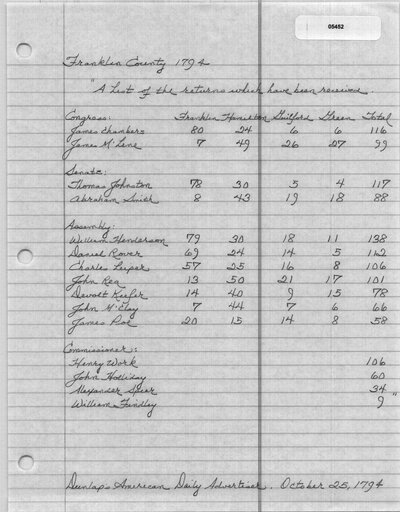 05452
Franklin County 1794
"A List of the returns which have been received.
Congress: Franklin Hamilton Guilford Green Total
James Chambers 80 24 6 6 116
James McLene 7 49 26 27 99
Senate:
Thomas Johnston 78 30 5 4 117
Abraham Smith 8 43 19 18 88
Assembly:
William Henderson 79 30 18 11 138
Daniel Royer 69 24 14 5 112
Charles Leiper 57 25 16 8 106
John Rea 13 50 21 17 101
Dewalt Keefer 14 40 9 15 78
John McClay 7 44 7 6 66
James Poe 20 15 14 8 58
Commissioner:
Henry Work 106
John Holliday 60
Alexander Spear 34
William Findlay 9 "
Dunlap's American Daily Advertiser. October 25, 1794